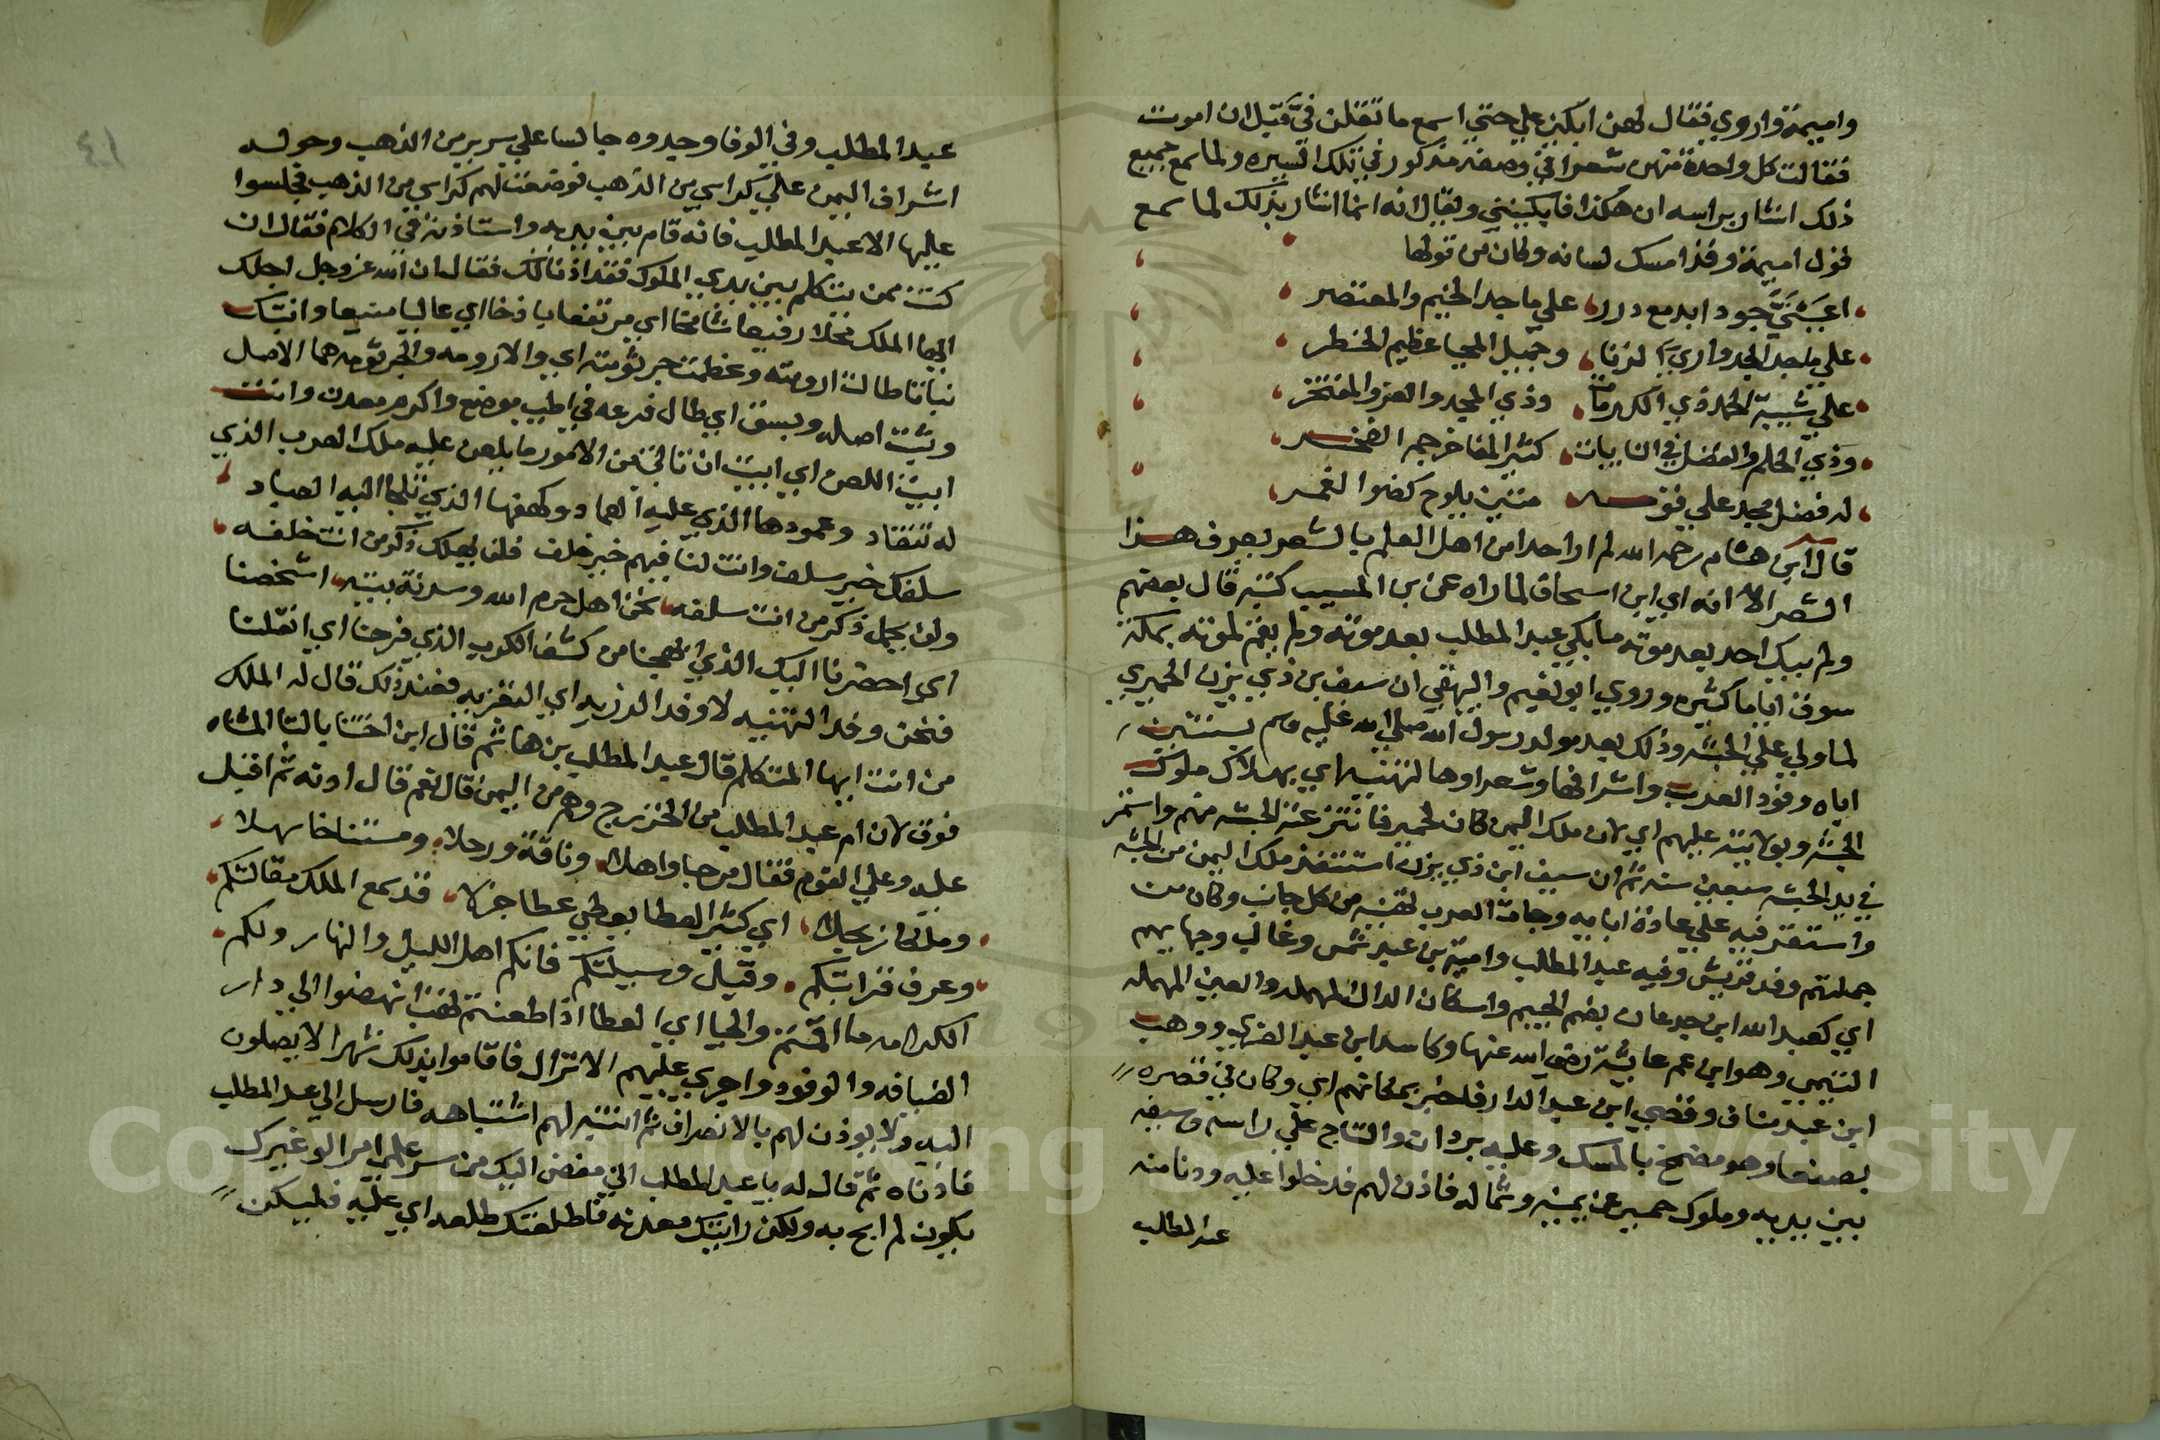 واميمة واروي فقال لهن ابكين علي حتي اسمع ما تقلن في قبل ان اموت
فقالت كل واحدة منهن شعرا في وصفه مذكور في تلك السيره ولما سمع جميع
ذلك اشار براسه ان هكذا فابكينني ويقال انه انما اشار بذلك لما سمع
قول اميمة وقد امسك لسانه وكان من قولها
اعيني جودا بدمع درر علي ماجد الخيم والمعتصر
علي ماجد الجد واري الزناد وجميل المحيا عظيم الخطر
علي شيبة الحمد ذي المكرمات وذي المجد والعز والمفتخر
وذي الحلم والفضل في النايبات كثير المفاخر جم الفخر
له فضل مجد علي قومه منير يلوح كضوا القمر
قال ابن هشام رحمه الله لم ار احدا من اهل العلم بالشعر يعرف هذا
الشعر الا انه اي ابن اسحاق لما راه عن بن المسيب كتبه قال بعضهم
ولم يبك احد بعد موته ما بكي عبد المطلب بعد موته ولم يقم لموته بمكة
سوق اياما كثيره وروي ابو نعيم والبيهقي ان سيف بن ذي يزن الحميري
لما ولي علي الحبشه وذلك بعد مولد رسول الله صلي الله عليه وسلم بسنتين
اتاه وفود العرب واشرافها وشعراوها لتهنيه اي بهلاك ملوك
الحبشه وبولايته عليهم اي لان ملك اليمن كان لحمير فانتزعته الحبشه منهم واستمر
في يد الحبشه سبعين سنه ثم ان سيف ابن ذي يزن استنقذ ملك اليمن من الحبشه
واستقر فيه علي عادة ابايه وجات العرب تهنيه من كل جانب وكان من
جملتهم وفد قريش وفيه عبد المطلب وامية بن عبد شمس وغالب وجهايهم
اي كعبد الله ابن جدعان بضم الجيم واسكان الدال المهمله والعين المهمله
التيمي وهو ابن عم عايشة رضي الله عنها وكاسد ابن عبد العزي ووهب
ابن عبد مناف وقصي ابن عبد الدار فلما خبر بمكانهم اي وكان في قصره
بصنعا وهو مضمخ بالمسك وعليه بردان والتاج علي راسه وسيفه
بين يديه وملوك حمير عن يمينه وشماله فاذن لهم فدخلوا عليه ودنا منه
عبد المطلب
٤١
عبد المطلب وفي الوفا وجدوه جالسا علي سرير من الذهب وحوله
اشراف اليمن علي كراسي من الذهب فوضعت لهم كراسي من الذهب فجلسوا
عليها الا عبد المطلب فانه قام بين يديه واستاذنه في الكلام فقال ان
كنت ممن يتكلم بين يدي الملوك فقد اذنا لك فقال ان الله عز وجل احلك
ايها الملك محلا رفيعا شامخا اي مرتفعا باذخا اي عاليا منيعا وانبتك
نباتا طالت ارومته وعظمت جرثومته اي والارومه والجرثومه هما الاصل
وثبت اصله وبسق اي طال فرعه في اطيب موضع واكرم معدن وانت
ابيت اللعن اي ابيت ان تاتي من الامور ما يلعن عليه ملك العرب الذي
له تنقاد وعمودها الذي عليه العماد وكهفها الذي تلجا اليه العباد
سلفك خير سلف وانت لنا فيهم خير خلف فلن يهلك ذكر من انت خلفه
ولن يخمل ذكر من انت سلفه نحن اهل حرم الله وسدنة بيته اشخصنا
اي احضرنا اليك الذي ابهجنا من كشف الكرب الذي فدحنا اي اثقلنا
فنحن وفد التهنيه لا وفد الرزيه اي التعزيه فعند ذلك قال له الملك
من انت ايها المتكلم قال عبد المطلب بن هاشم قال ابن اختنا بالتا المثناه
فوق لان ام عبد المطلب من الخزرج وهم من اليمن قال نعم قال ادنه ثم اقبل
عليه وعلي القوم فقال مرحبا واهلا وناقة ورحلا ومستناخا سهلا
وملكا ربحلا اي كثير العطا يعطي عطا جزلا قد سمع الملك مقالتكم
وعرف قرابتكم وقبل وسيلتكم فانكم اهل الليل والنهار ولكم
الكرامه ما اقمتم والحبا اي العطا اذا ظعنتم ثم انهضوا الي دار
الضيافه والوفود واجري عليهم الانزال فاقاموا بذلك شهرا لا يصلون
اليه ولا يوذن لهم بالانصراف ثم انتبه لهم انتباهه فارسل الي عبد المطلب
فادناه ثم قال له يا عبد المطلب اني مفض اليك من سر علمي امرا لو غيرك
يكون لم ابح به ولكن رايتك معدنه فاطلعتك طلعه اي عليه فليكن